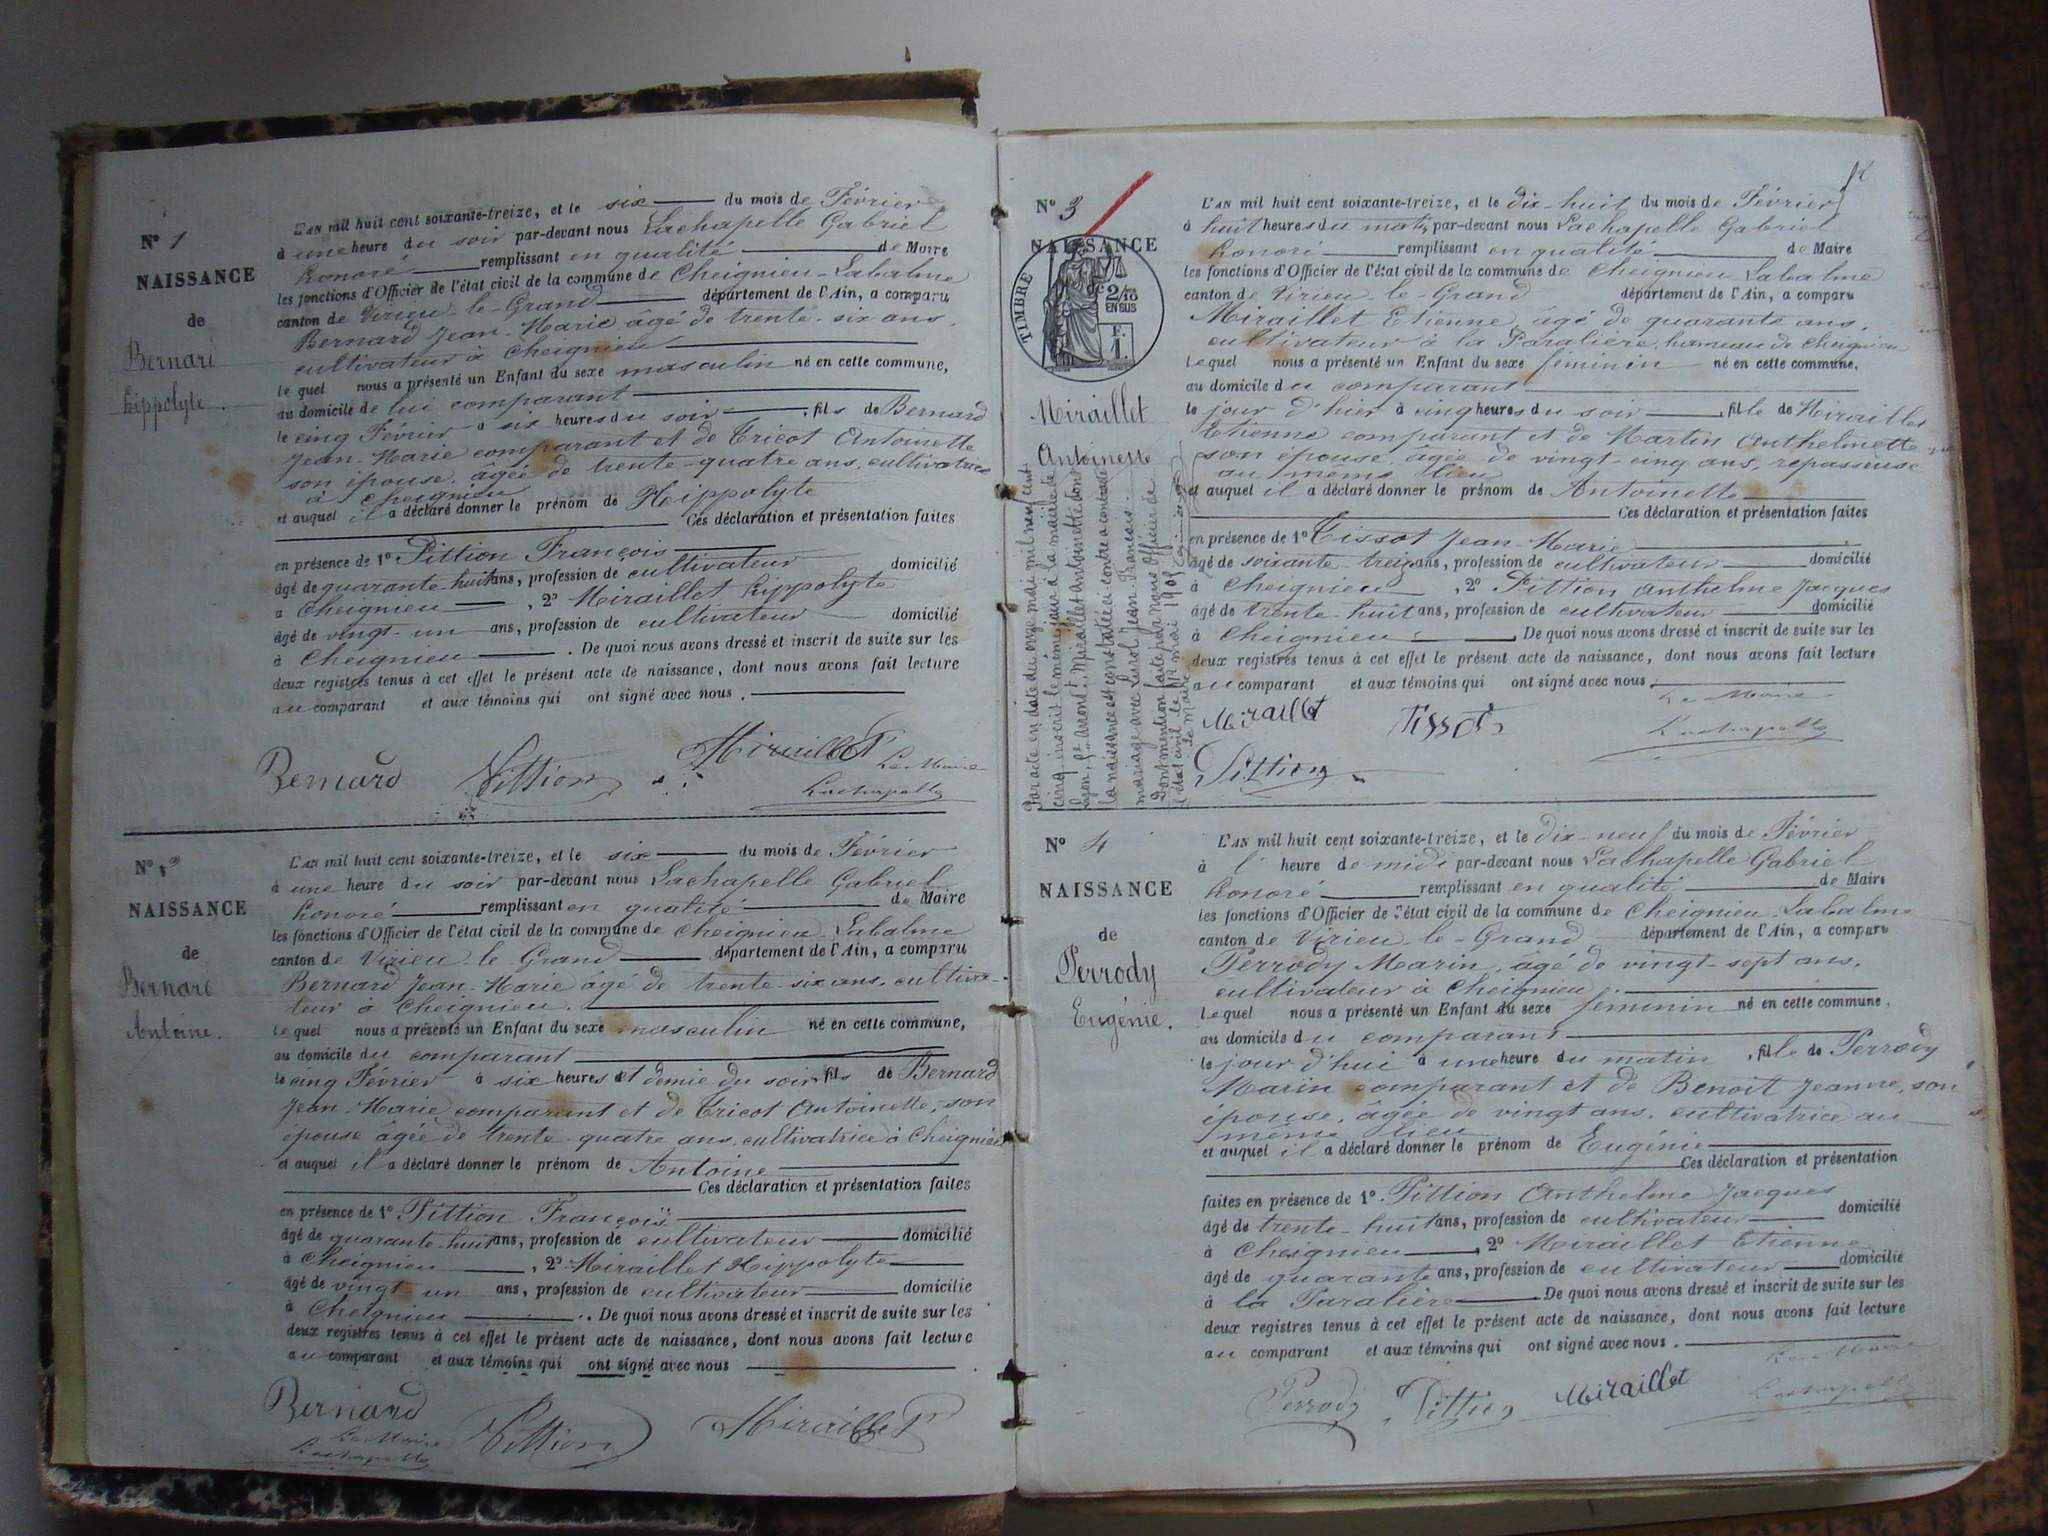 Nº 1
NAISSANCE
de
Bernard
Hippolyte.
L'AN mil huit cent soixante-treize, et le six du mois de Février
à une heure du soir par-devant nous Lachapelle Gabriel
honoré remplissant en qualité de Maire
les fonctions d'Officier de l'état civil de la commune de Cheignieu-Labalme
canton de Virieu-le-Grand département de l'Ain, a comparu
Bernard Jean-Marie, âgé de trente-six ans,
cultivateur à Cheignieu
lequel nous a présenté un Enfant du sexe masculin né en cette commune,
au domicile de lui comparant
le cinq Février à six heures du soir, fils de Bernard
Jean-Marie comparant et de Tricot Antoinette
son épouse, âgée de trente-quatre ans, cultivatrice
à Cheignieu
et auquel il a déclaré donner le prénom de Hippolyte
Ces déclaration et présentation faites
en présence de 1º Pittion François
âgé de quarante-huit ans, profession de cultivateur domicilié
à Cheignieu, 2º Miraillet Hippolyte
âgé de vingt-un ans, profession de cultivateur domicilié
à Cheignieu. De quoi nous avons dressé et inscrit de suite sur les
deux registres tenus à cet effet le présent acte de naissance, dont nous avons fait lecture
au comparant et aux témoins qui ont signé avec nous.
Bernard Pittion Miraillet Le Maire
Lachapelle
Nº 2
NAISSANCE
de
Bernard
Antoine.
L'AN mil huit cent soixante-treize, et le six du mois de Février
à une heure du soir par-devant nous Lachapelle Gabriel
honoré remplissant en qualité de Maire
les fonctions d'Officier de l'état civil de la commune de Cheignieu-Labalme
canton de Virieu-le-Grand département de l'Ain, a comparu
Bernard Jean-Marie âgé de trente-six ans, cultiva-
teur à Cheignieu.
lequel nous a présenté un Enfant du sexe masculin né en cette commune,
au domicile du comparant
le cinq Février à six heures et demie du soir fils de Bernard
Jean-Marie comparant et de Tricot Antoinette, son
épouse âgée de trente quatre ans, cultivatrice à Cheignieu
et auquel il a déclaré donner le prénom de Antoine
Ces déclaration et présentation faites
en présence de 1º Pittion François
âgé de quarante-huit ans, profession de cultivateur domicilié
à Cheignieu, 2º Miraillet Hippolyte
âgé de vingt un ans, profession de cultivateur domicilié
à Cheignieu. De quoi nous avons dressé et inscrit de suite sur les
deux registres tenus à cet effet le présent acte de naissance, dont nous avons fait lecture
au comparant et aux témoins qui ont signé avec nous
Bernard Pittion Miraillet
Le Maire
Lachapelle
2
Nº 3
NAISSANCE
TIMBRE
2/10
EN SUS
F.
1.
Miraillet
Antoinette
Par acte en date du onze mai mil neuf cent
cinq, inscrit le même jour à la mairie de
Lyon, 5e arrondt, Miraillet Antoinette dont
la naissance est constatée ci-contre a contracté
mariage avec Jean-Francois.
Dont mention faite par nous Officier de
l'état civil le mai 1905
Le Maire
L'AN mil huit cent soixante-treize, et le dix-huit du mois de Février
à huit heures du matin, par-devant nous Lachapelle Gabriel
honoré remplissant en qualité de Maire
les fonctions d'Officier de l'état civil de la commune de Cheignieu-Labalme
canton de Virieu-le-Grand département de l'Ain, a comparu
Miraillet Etienne, âgé de quarante ans,
cultivateur à la Paralière, hameau de Cheignieu
lequel nous a présenté un Enfant du sexe féminin né en cette commune,
au domicile du comparant
le jour d'hier à cinq heures du soir, fille de Miraillet
Etienne comparant et de Martin Anthelmette
son épouse, âgée de vingt-cinq ans, repasseuse
au même lieu
et auquel il a déclaré donner le prénom de Antoinette
Ces déclaration et présentation faites
en présence de 1º Tissot Jean-Marie
âgé de soixante-treize ans, profession de cultivateur domicilié
à Cheignieu, 2º Pittion Anthelme Jacques
âgé de trente-huit ans, profession de cultivateur domicilié
à Cheignieu. De quoi nous avons dressé et inscrit de suite sur les
deux registres tenus à cet effet le présent acte de naissance, dont nous avons fait lecture
au comparant et aux témoins qui ont signé avec nous.
Miraillet Tissot Le Maire
Pittion Lachapelle
Nº 4
NAISSANCE
de
Perrody
Eugénie.
L'AN mil huit cent soixante-treize, et le dix-neuf du mois de Février
à l' heure de midi par-devant nous Lachapelle Gabriel
honoré remplissant en qualité de Maire
les fonctions d'Officier de l'état civil de la commune de Cheignieu-Labalme
canton de Virieu-le-Grand département de l'Ain, a comparu
Perrody Marin, âgé de vingt-sept ans,
cultivateur à Cheignieu
lequel nous a présenté un Enfant du sexe féminin né en cette commune,
au domicile du comparant
le jour d'hui à une heure du matin, fille de Perrody
Marin comparant et de Benoit Jeanne, son
épouse, âgée de vingt ans, cultivatrice au
même lieu
et auquel il a déclaré donner le prénom de Eugénie
Ces déclaration et présentation
faites en présence de 1º Pittion Anthelme Jacques
âgé de trente-huit ans, profession de cultivateur domicilié
à Cheignieu, 2º Miraillet Etienne
âgé de quarante ans, profession de cultivateur domicilié
à la Paralière De quoi nous avons dressé et inscrit de suite sur les
deux registres tenus à cet effet le présent acte de naissance, dont nous avons fait lecture
au comparant et aux témoins qui ont signé avec nous.
Perrody Pittion Miraillet Le Maire
Lachapelle